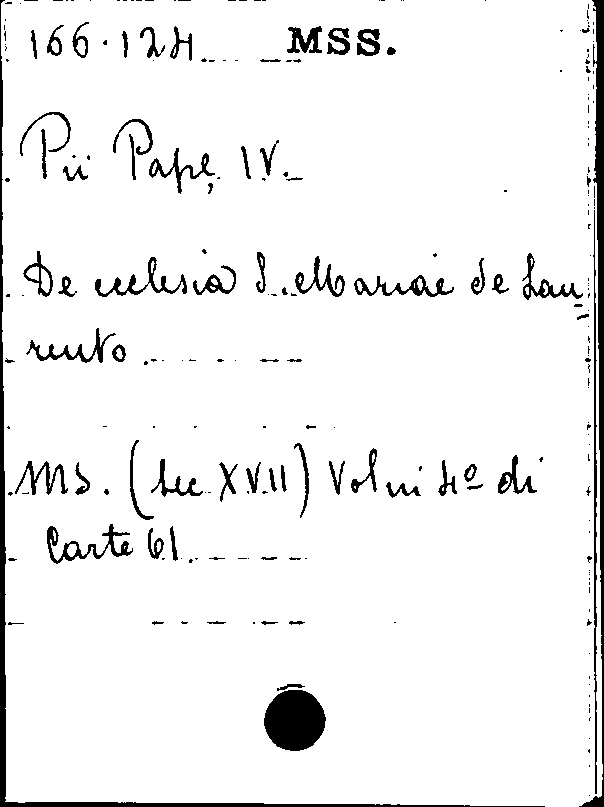 166·124 MSS.
Pii Papę IV.
De ecclesia S. Mariae de Lau=
rento
MS. (Sec XVII) Vol in 4º di
Carte 61.